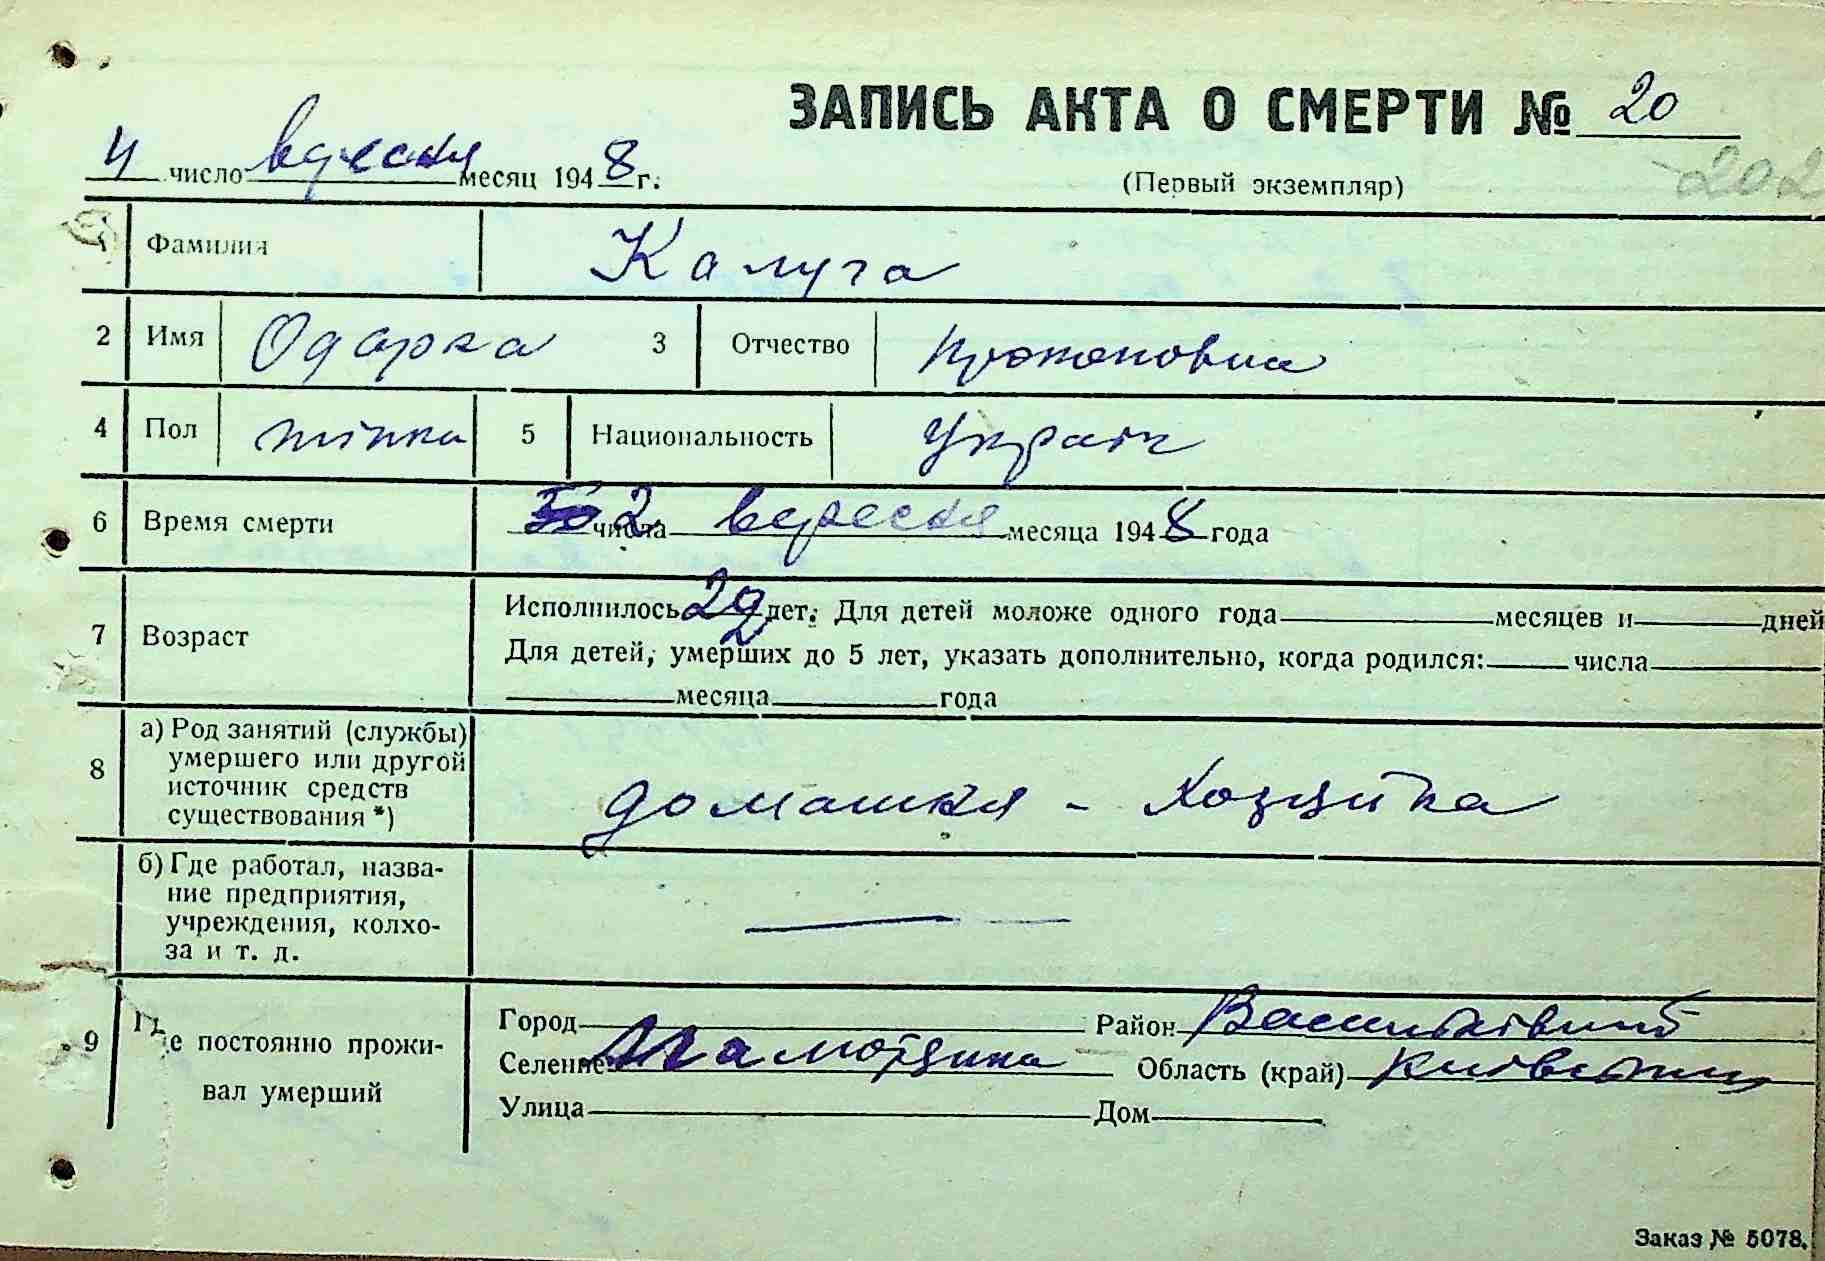 ЗАПИСЬ АКТА О СМЕРТИ № 20
4 число вересня месяц 1948 г.
(Первый экземпляр) 202
1 Фамилия Калуга
2 Имя Одарка 3 Отчество
4 Пол жінка 5 Национальность Україн
6 Время смерти 2 числа вересня месяца 1948 года
7 Возраст
Исполнилось 29 лет. Для детей моложе одного года месяцев и дней
Для детей, умерших до 5 лет, указать дополнительно, когда родился: числа
месяца года
8 а) Род занятий (службы)
умершего или другой
источник средств
существования *)
домашня - хозяйка
б) Где работал, назва-
ние предприятия,
учреждения, колхо-
за и т. д.
9 Где постоянно прожи-
вал умерший
Город Район Васильківський
Селение Область (край) Київської
Улица Дом
Заказ № 5078.